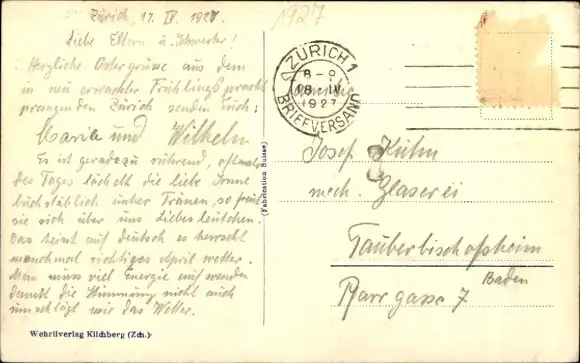 Zürich, 17. IV. 1927.
1927
Liebe Eltern u. Schwester!
Herzliche Ostergrüsse aus dem
in neu erwachter Frühlingspracht
prangenden Zürich senden Euch:
Maria und Wilhelm
Es ist geradezu rührend, oftmals
des Tages lächelt die liebe Sonne
buchstäblich unter Tränen, so freut
sie sich über uns Liebesleutchen.
Das heisst auf deutsch es herrscht
manchmal richtiges April wetter.
Man muss viel Energie aufwenden
damit die Stimmung nicht auch
umschlägt wie das Wetter.
Wehrliverlag Kilchberg (Zch.)
(Fabrication Suisse)
ZÜRICH 1
8-9
18. IV.
1927
BRIEFVERSAND
Familie
Josef Kühn
mech. Glaserei
Tauberbischofsheim
Baden
Pfarrgasse 7